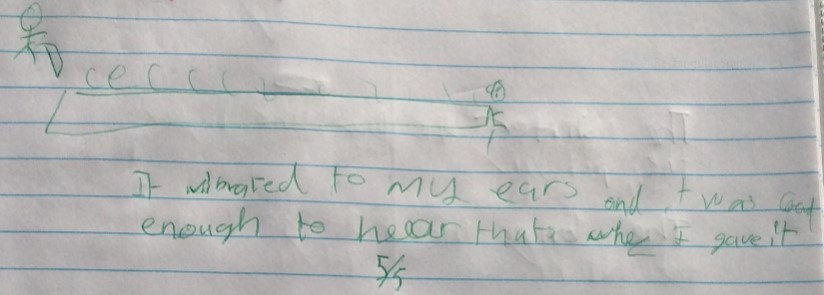 It vibrated to my ears and it was
enough to hear thats why I gave it
5/5